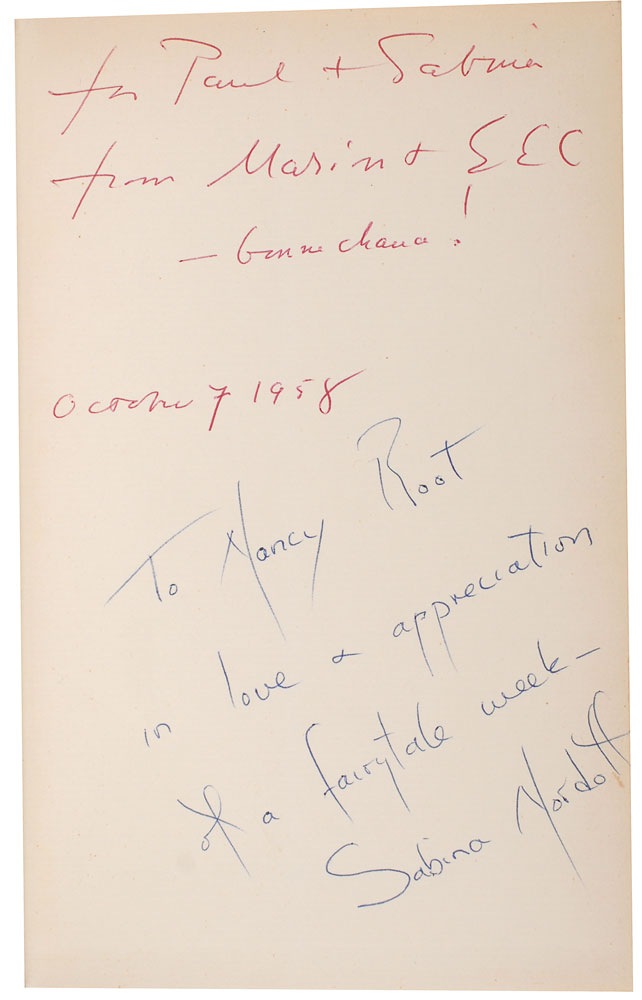 for Paul + Sabina
from Marion + EEC
— bonne chance!
October 7 1958
To Nancy Root
in love + appreciation
of a fairytale week—
Sabina Nordoff